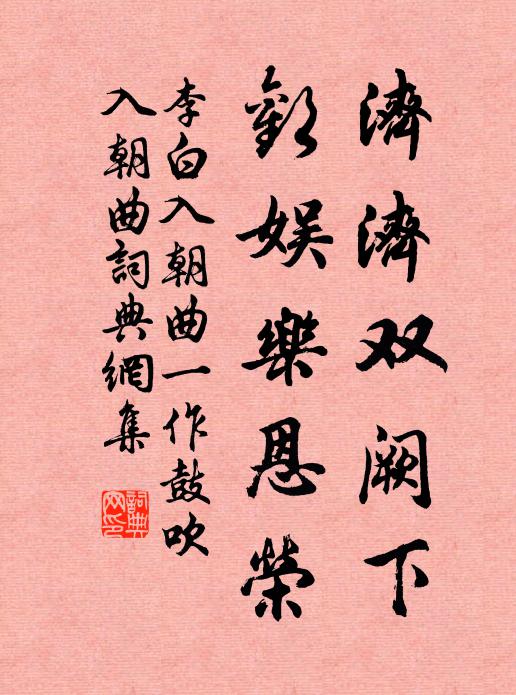 濟濟双阙下
歡娱樂恩榮
李白入朝曲一作鼓吹
入朝曲詞典網集
詞典网印